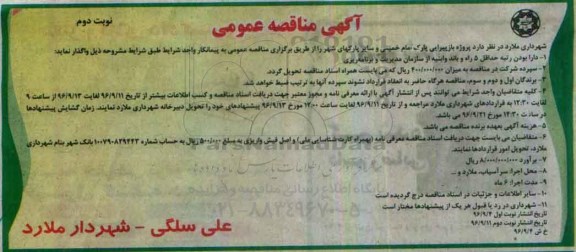 آگهی مناقصه عمومی
نوبت دوم
شهرداری ملارد در نظر دارد پروژه بازپیرایی پارک امام خمینی و سایر پارکهای شهر را از طریق برگزاری مناقصه عمومی به پیمانکار واجد شرایط طبق شرایط مشروحه ذیل واگذار نماید:
۱- دارا بودن رتبه حداقل ۵ راه و باند وابنیه از سازمان مدیریت و برنامه‌ریزی
۲- سپرده شرکت در مناقصه به میزان ۴۰۰/۰۰۰/۰۰۰ ریال که می بایست همراه اسناد مناقصه تحویل گردد.
۳- برندگان اول و دوم و سوم، مناقصه هرگاه حاضر به انعقاد قرارداد نشوند سپرده آنها به ترتیب ضبط خواهد شد.
۴- کلیه متقاضیان واجد شرایط می توانند پس از انتشار آگهی با ارائه معرفی نامه و مجوز معتبر جهت دریافت اسناد مناقصه و کسب اطلاعات بیشتر از تاریخ ۹۶/۹/۱۱ لغایت ۹۶/۹/۱۳ از ساعت ۹
لغایت ۱۲:۳۰ به قراردادهای شهرداری ملارد مراجعه و از تاریخ ۹۶/۹/۱۱ لغایت ساعت ۱۳:۰۰ مورخ ۹۶/۹/۱۳ پیشنهادهای خود را تحویل دبیرخانه شهرداری ملارد نمایند. زمان گشایش پیشنهادها
در ساعت ۱۴:۳۰ مورخ ۹۶/۹/۲۱ می باشد.
۵- هزینه آگهی بعهده برنده مناقصه می باشد.
۶- متقاضیان می بایست جهت دریافت اسناد مناقصه معرفی نامه (بهمراه کارت شناسایی ملی) و اصل فیش واریزی به مبلغ ۵۰۰/۰۰۰ ریال به حساب شماره ۱۰۰۷۹۰۸۲۹۴۴۳ بانک شهر بنام شهرداری
ملارد، تحویل امور قراردادها نمایند.
۷- برآورد ۸/۰۰۰/۰۰۰/۰۰۰ ریال
۸- محل اجرا: سرآسیاب، ملارد و ...
۹- مدت اجرا: ۶ ماه
۱۰- سایر اطلاعات و جزئیات در اسناد مناقصه درج گردیده است
۱۱- شهرداری در رد یا قبول هر یک از پیشنهادها مختار است
تاریخ انتشار نوبت اول ۹۶/۹/۴
تاریخ انتشار نوبت دوم ۹۶/۹/۱۱
خ ش ۹۶/۹/۴
علی سلگی - شهردار ملارد